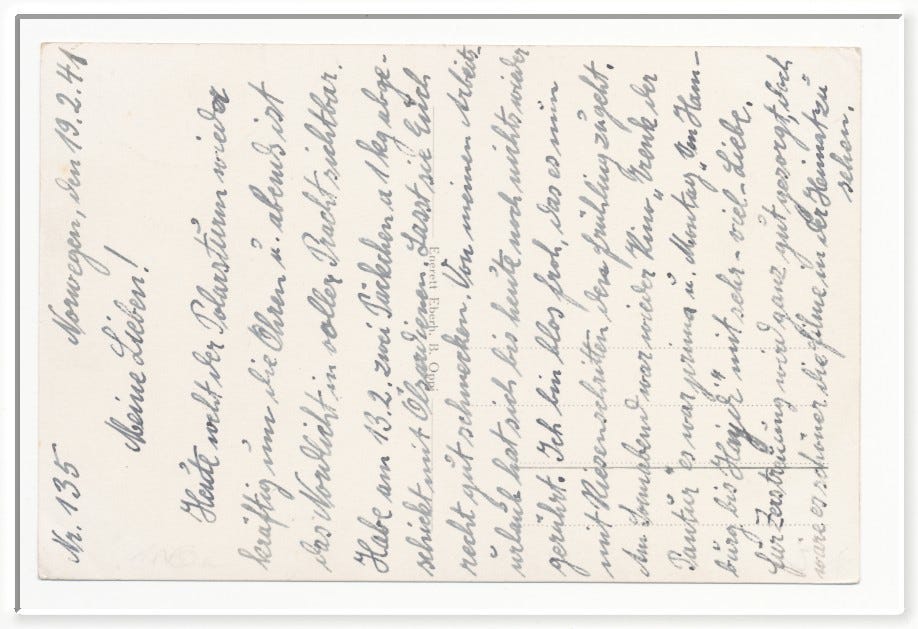 Nr. 135 Norwegen, den 19.2.41
Meine Lieben!
Heute weht der Polarsturm wieder
kräftig um die Ohren u. abends ist
das Nordlicht in voller Pracht sichtbar.
Habe am 13.2. zwei Päckchen a 1kg abge-
schickt mit Ölsardinen. Lasst sie Euch
recht gut schmecken. Von meinen Arbeits-
urlaub hat sich bis heute noch nichts wieder
gerührt. Ich bin blos froh, das es nun
mit Riesenschritten den Frühling zugeht.
Am Sonnabend war wieder Kino, " der
" es war prima u. Montag " Von Ham-
burg bis Haiti" mit sehr viel Liebe.
Für Zerstreuung wird ganz gut gesorgt, doch
wäre es schöner die Filme in der Heimat zu
sehen.
Everett Eberh. B.